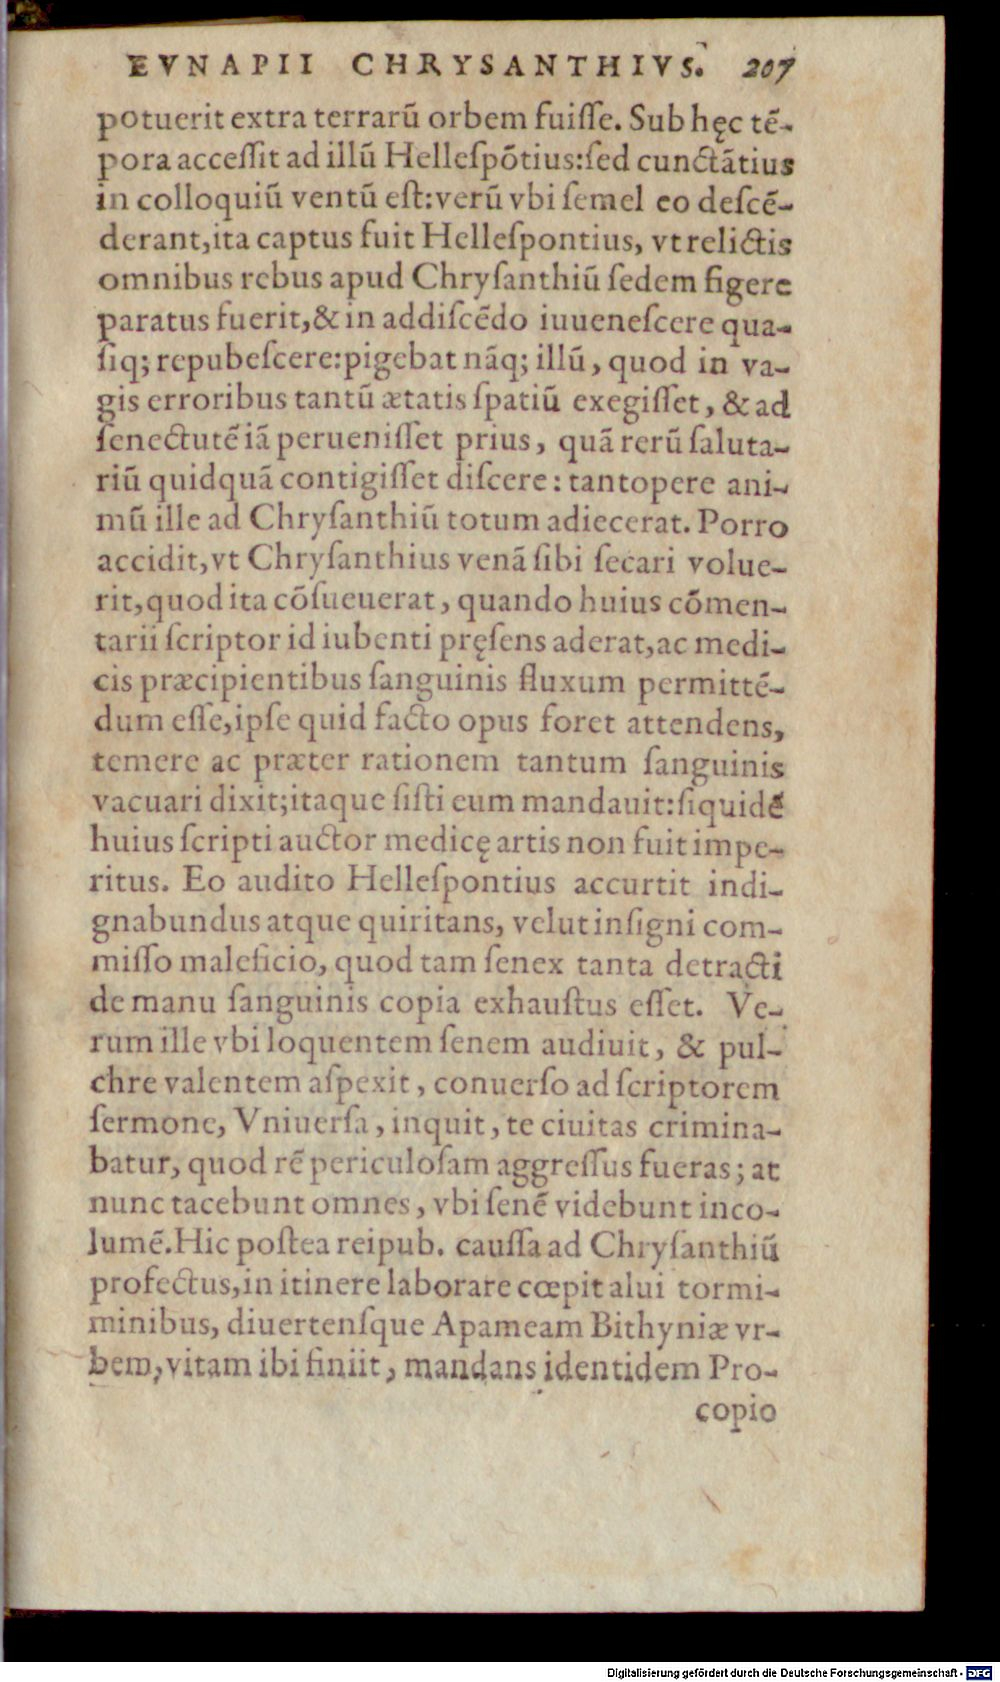 EVNAPII CHRYSANTHIVS. 207
potuerit extra terrarū orbem fuiſſe. Sub hęc tē-
pora acceſſit ad illū Helleſpōtius:ſed cunctātius
in colloquiū ventū eſt:verū vbi ſemel eo deſcē-
derant,ita captus fuit Helleſpontius, vt relictis
omnibus rebus apud Chryſanthiū ſedem figere
paratus fuerit,& in addiſcēdo iuueneſcere qua-
ſiq; repubeſcere:pigebat nāq; illū, quod in va-
gis erroribus tantū ætatis ſpatiū exegiſſet, & ad
ſenectutē iā perueniſſet prius, quā rerū ſaluta-
riū quidquā contigiſſet diſcere: tantopere ani-
mū ille ad Chryſanthiū totum adiecerat. Porro
accidit,vt Chryſanthius venā ſibi ſecari volue-
rit,quod ita cōſueuerat, quando huius cōmen-
tarii ſcriptor id iubenti pręſens aderat,ac medi-
cis præcipientibus ſanguinis fluxum permittē-
dum eſſe,ipſe quid facto opus foret attendens,
temere ac præter rationem tantum ſanguinis
vacuari dixit;itaque ſiſti eum mandauit:ſiquidē
huius ſcripti auctor medicę artis non fuit impe-
ritus. Eo audito Helleſpontius accurtit indi-
gnabundus atque quiritans, velut inſigni com-
miſſo maleficio, quod tam ſenex tanta detracti
de manu ſanguinis copia exhauſtus eſſet. Ve-
rum ille vbi loquentem ſenem audiuit, & pul-
chre valentem aſpexit, conuerſo ad ſcriptorem
ſermone, Vniuerſa, inquit, te ciuitas crimina-
batur, quod rē periculoſam aggreſſus fueras; at
nunc tacebunt omnes, vbi ſenē videbunt inco-
lumē.Hic poſtea reipub. cauſſa ad Chryſanthiū
profectus,in itinere laborare cœpit alui tormi-
minibus, diuertenſque Apameam Bithyniæ vr-
bem,vitam ibi finiit, mandans identidem Pro-
copio
Digitalisierung gefördert durch die Deutsche Forschungsgemeinschaft - DFG